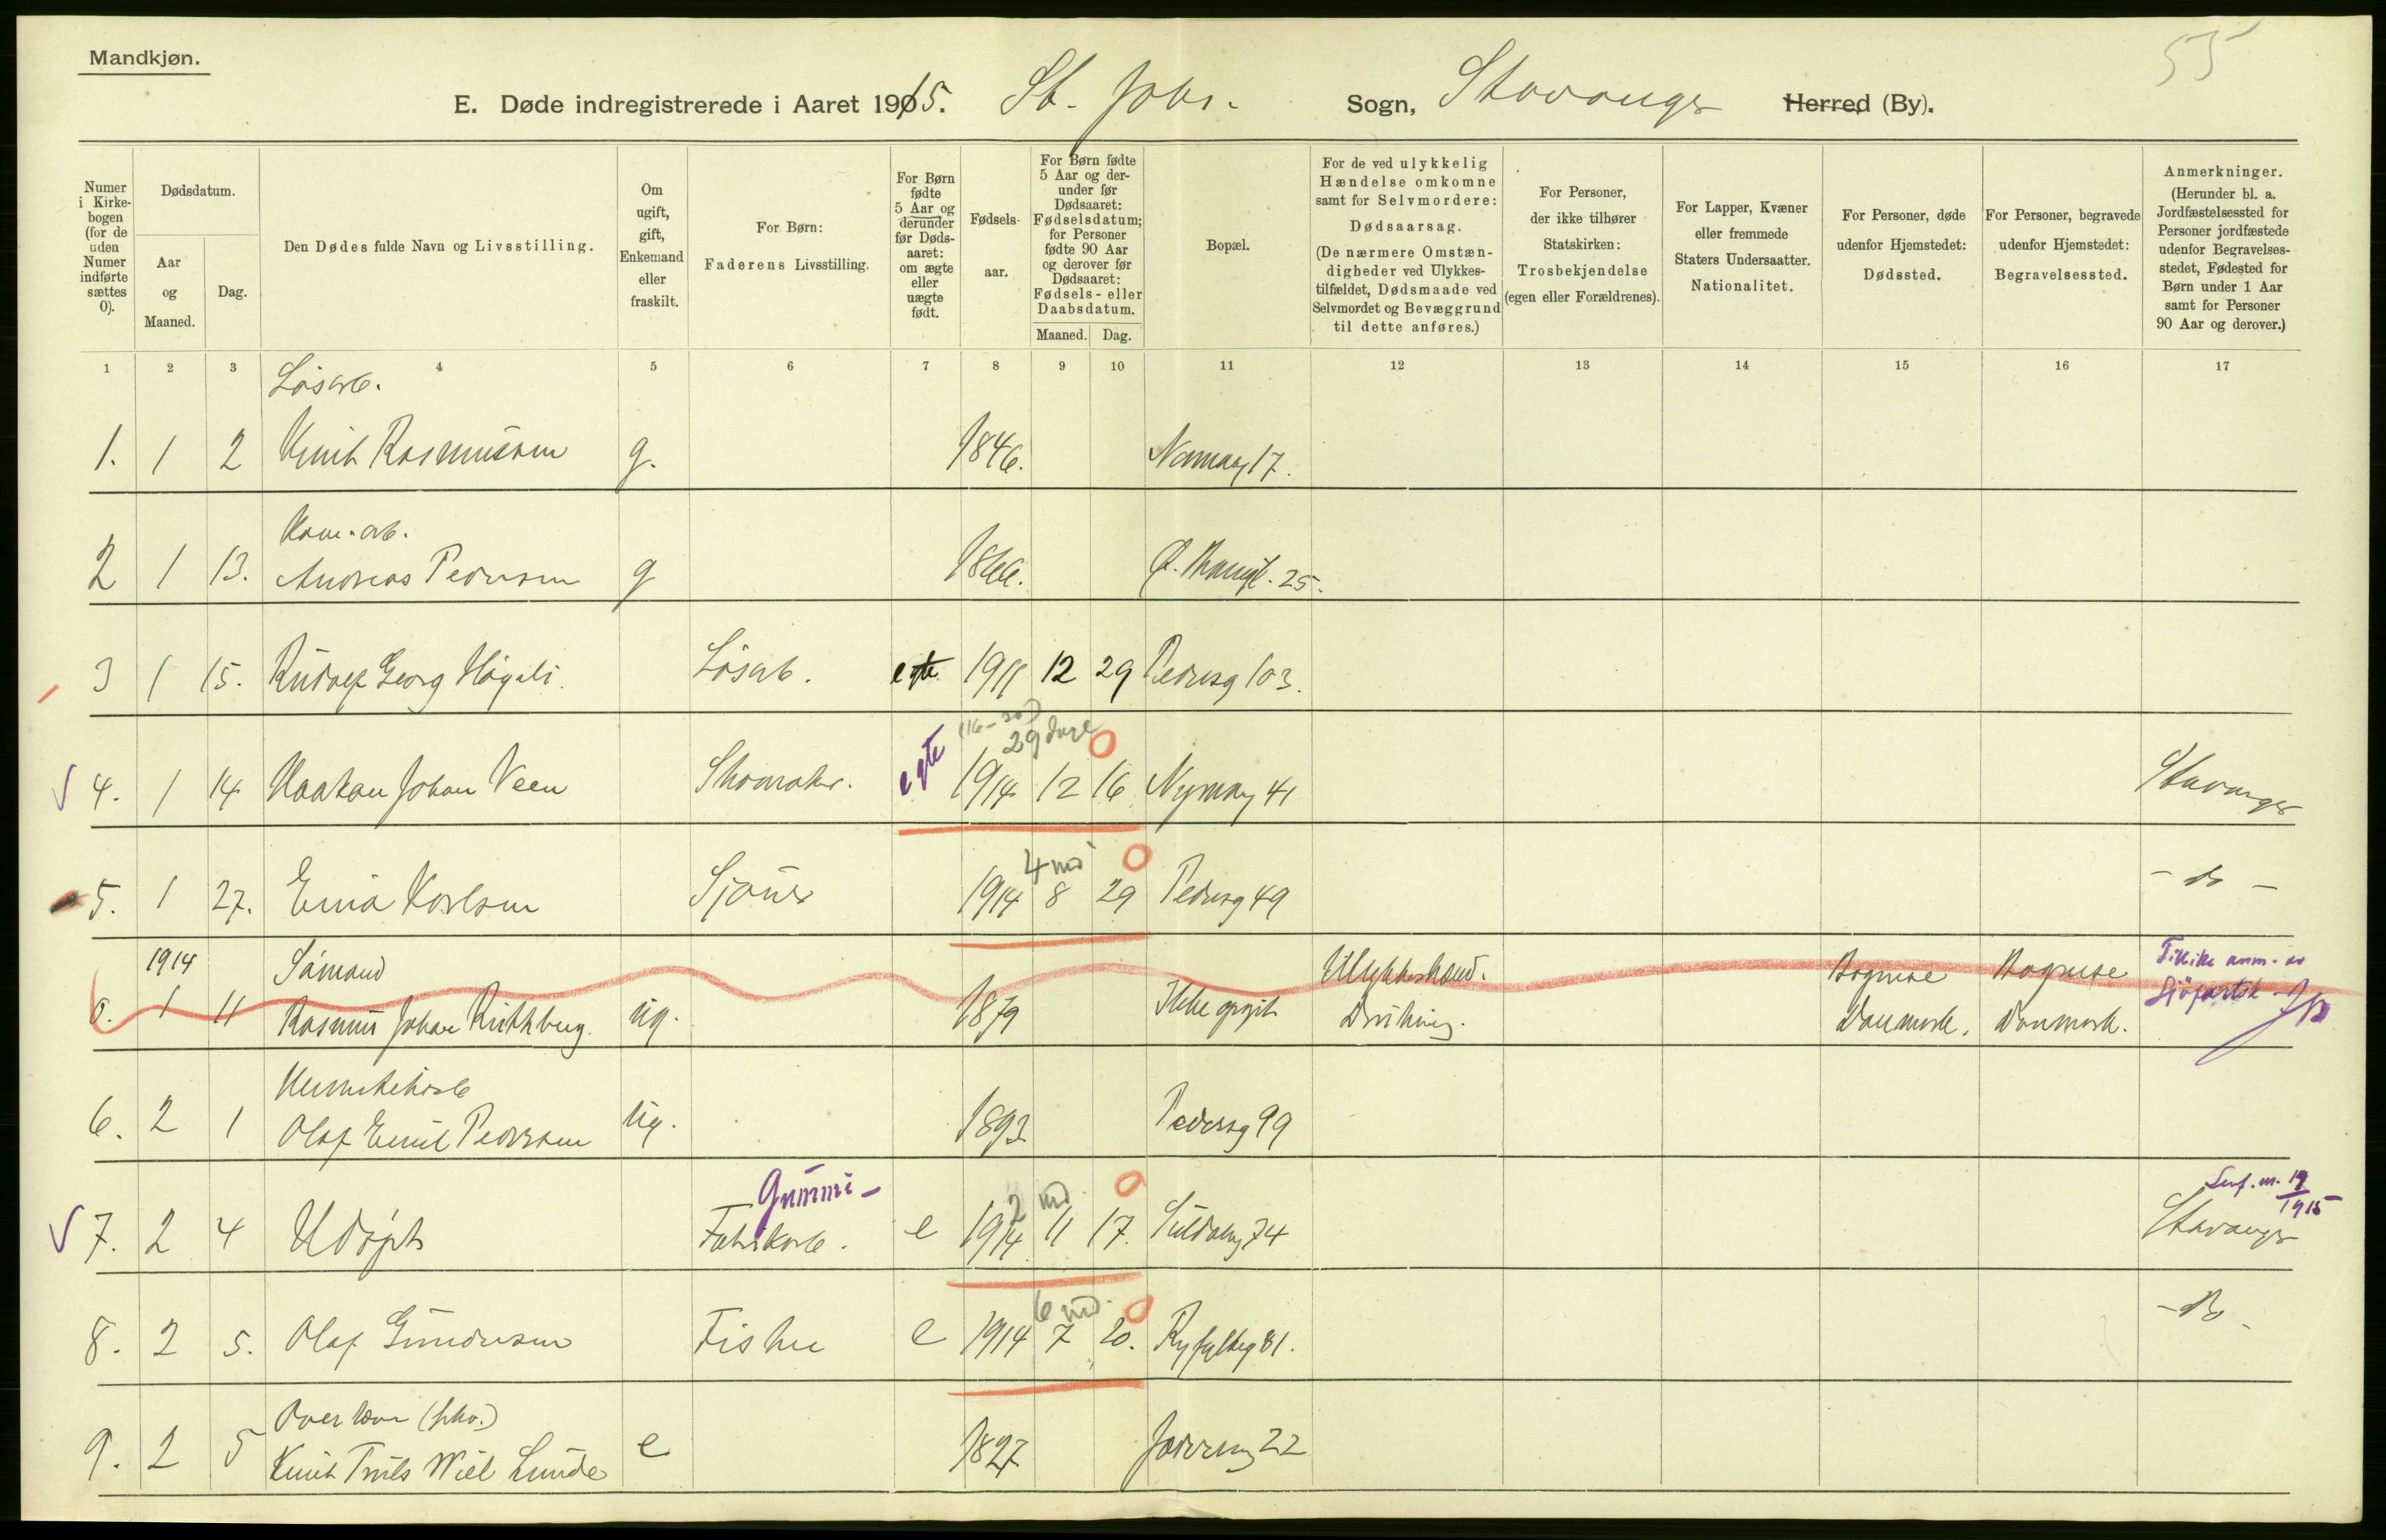 Mandkjøn.
55
E. Døde indregistrerede i Aaret 1915. St. Joh.- Sogn, Stavanger Herred (By).
Numer i Kirkebogen (for de uden Numer indførte sættes 0).
Dødsdatum.
Aar og Maaned.
Dag.
Den Dødes fulde Navn og Livsstilling.
Om ugift, gift, Enkemand eller fraskilt.
For Børn: Faderens Livsstilling.
For Børn fødte 5 Aar og derunder før Dødsaaret: om ægte eller uægte født.
Fødselsaar.
For Børn fødte 5 Aar og derunder før Dødsaaret: Fødselsdatum; for Personer fødte 90 Aar og derover før Dødsaaret: Fødsels- eller Daabsdatum.
Maaned. Dag.
Bopæl.
For de ved ulykkelig Hændelse omkomne samt for Selvmordere: Dødsaarsag. (De nærmere Omstændigheder ved Ulykkestilfældet, Dødsmaade ved Selvmordet og Bevæggrund til dette anføres.)
For Personer, der ikke tilhører Statskirken: Trosbekjendelse (egen eller Forældrenes).
For Lapper, Kvæner eller fremmede Staters Undersaatter. Nationalitet.
For Personer, døde udenfor Hjemstedet: Dødssted.
For Personer, begravede udenfor Hjemstedet: Begravelsessted.
Anmerkninger. (Herunder bl. a. Jordfæstelsessted for Personer jordfæstede udenfor Begravelsesstedet, Fødested for Børn under 1 Aar samt for Personer 90 Aar og derover.)
1 2 3 4 5 6 7 8 9 10 11 12 13 14 15 16 17
Løsarb.
1. 1 2 Knut Rasmussen g. 1846. 17.
Kom. arb.
2 1 13. Andreas Pedersen g 1866. 25.
3 1 15. Rudolf Georg Løsarb. egte 1911 12 29 Pedersg 103.
29 dage
4. 1 14 Haakan Johan Veen Skomaker. egte 1914 12 16 Nymansg 41 Stavanger
4 md
5. 1 27. Karlsen Sjauer 1914 8 29 Pedersg 49 - do -
1914 Sømand Ulykkeshænd. Bogense Bogense
0. 1 11 Rasmus Johan ug. 1879 Ikke opgit Drukning. Danmark. Danmark.
Hermetikarb
6. 2 1 Olaf Emil Pedersen ug. 1893 Pedersg 99
Gummi-
2 md
7. 2 4 Udøpt Fabrikarb. e 1914 11 17. 74 Stavanger
6 md.
8. 2 5. Olaf Gundersen Fisker e 1914 7 20. Ryfylkeg 81. - Do -
9. 2 5 Knut Truls Lunde e 1827 22